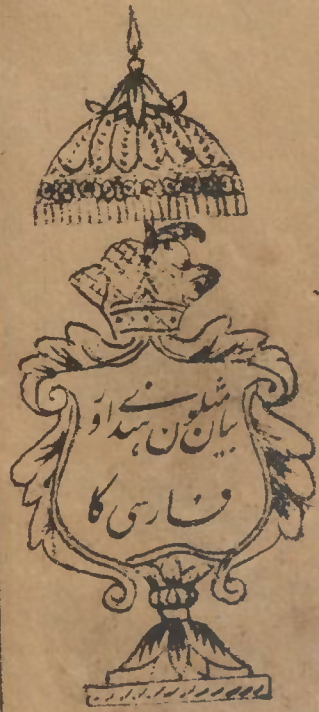 بیان مثلون ہندے اور
فارسی کا